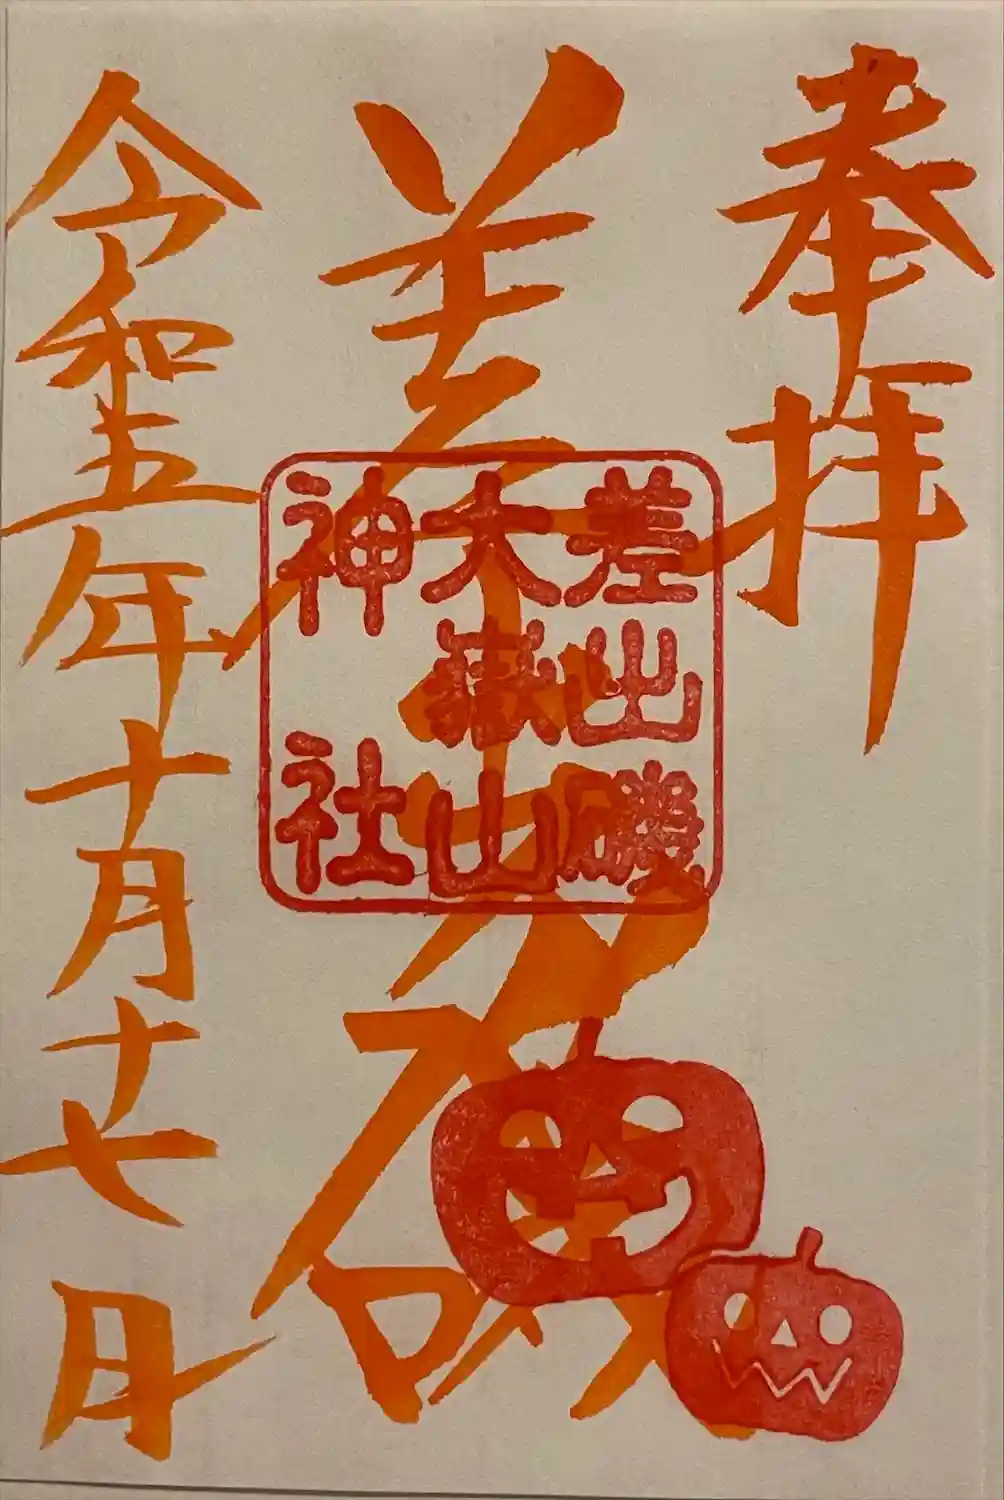 奉拝
差出磯
差出磯
大嶽山
神社
令和五年十月十七日